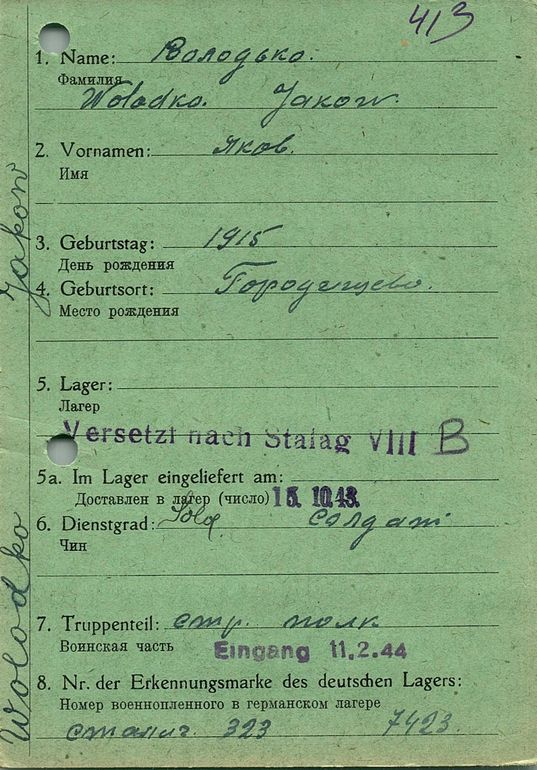 413
1. Name: Володько.
Фамилия
Wolodko. Jakow.
2. Vornamen: Яков.
Имя
3. Geburtstag: 1915
День рождения
4. Geburtsort: Городищево.
Место рождения
5. Lager:
Лагер
Versetzt nach Stalag VIII B
5a. Im Lager eingeliefert am:
Доставлен в лагер (число) 15. 10. 43.
6. Dienstgrad: Sold. Солдат
Чин
7. Truppenteil: стр. полк
Воинская часть Eingang 11.2.44
8. Nr. der Erkennungsmarke des deutschen Lagers:
Номер военнопленного в германском лагере
сталаг. 323 7423.
Wolodko Jakow